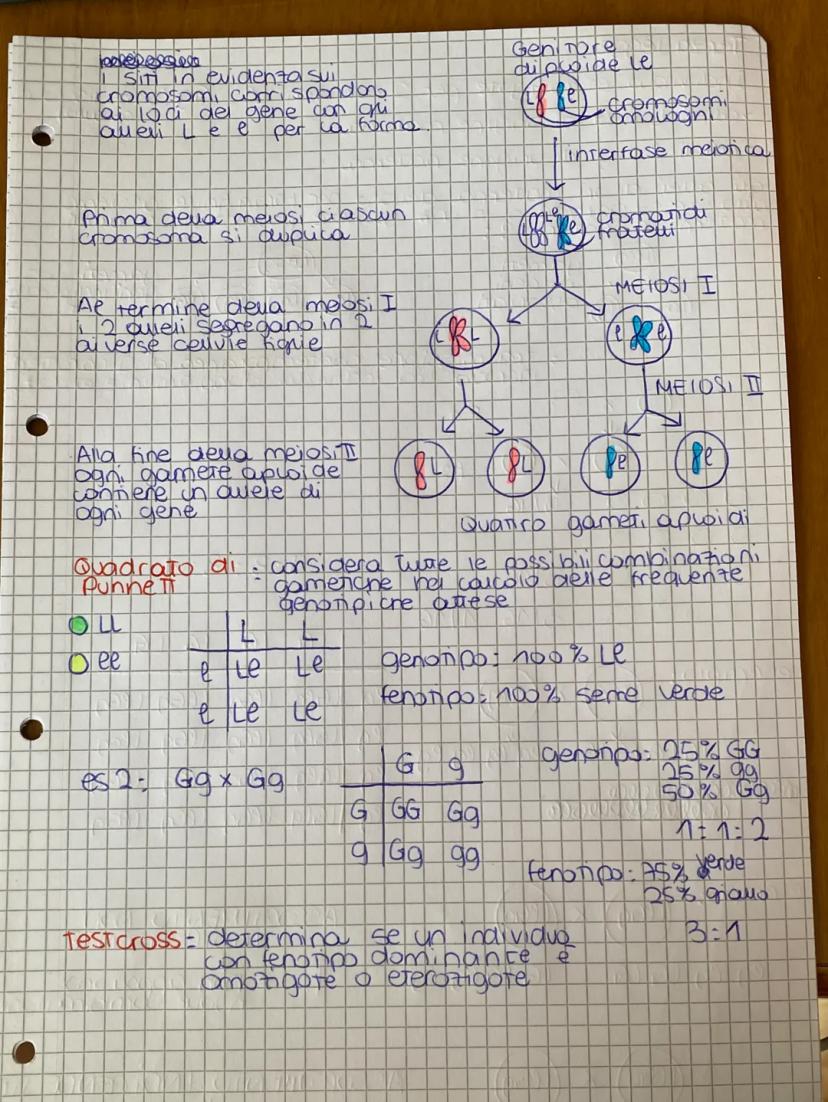 i siti in evidenza sui
cromosomi corrispondono
ai loci del gene con gli
alleli L e l per la forma.
Genitore
diploide Ll
L l
cromosomi
omologhi
interfase meiotica
Prima della meiosi ciascun
cromosoma si duplica
L L l l
cromatidi
fratelli
MEIOSI I
Al termine della meiosi I
i 2 alleli segregano in 2
diverse cellule figlie
L L
l l
MEIOSI II
Alla fine della meiosi II
ogni gamete aploide
contiene un allele di
ogni gene
L L l l
Quattro gameti aploidi
Quadrato di Punnett: considera tutte le possibili combinazioni
gametiche nel calcolo delle frequenze
genotipiche attese
LL
ll
L L
l Ll Ll
l Ll Ll
genotipo: 100% Ll
fenotipo: 100% seme verde
es 2: Gg x Gg
G g
G GG Gg
g Gg gg
genotipo: 25% GG
25% gg
50% Gg
1:1:2
fenotipo: 75% verde
25% giallo
3:1
Testcross = determina se un individuo
con fenotipo dominante è
omozigote o eterozigote